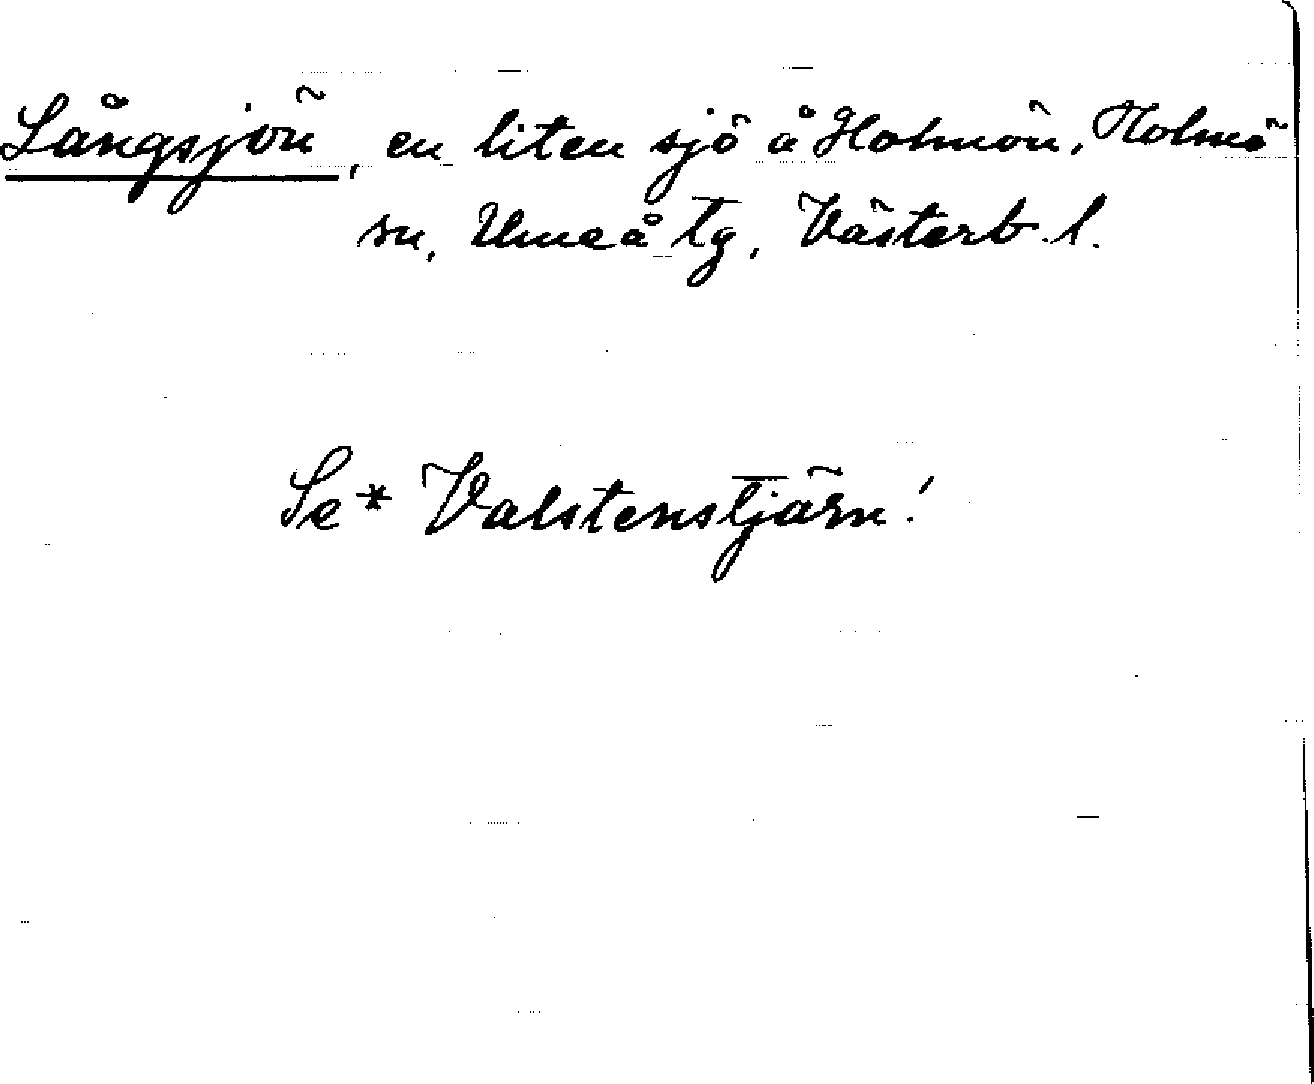 Långsjön, en liten sjö å Holmön, Holmö
sn, Umeå tg, Västerb. l.
Se * Valstenstjärn!